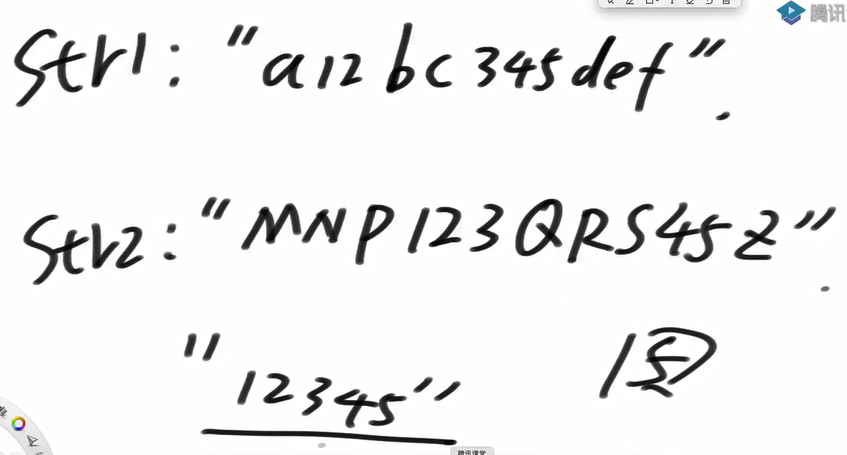 腾讯
Str1: "a12bc345def".
Str2: "MNP123QRS45Z".
"12345"
腾讯课堂